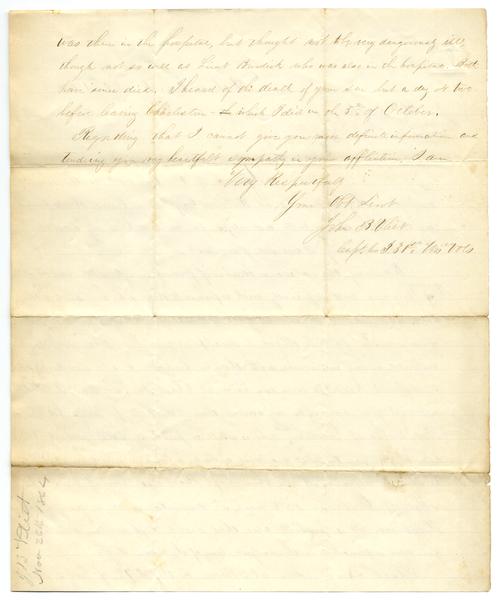 was then in the hospital, but thought not to be very dangerously ill
though not so well as Lieut Burdick who was also in the hospital. Both
have since died. I heard of the death of your son but a day or two
before leaving Charleston - which I did on the 5th of October.
Regretting that I cannot give you more definite information and
tendering you my heartfelt sympathy in your affliction, I am
Very Respectfully
Your Obt. Servt
John B. Vliet
Capt
J B Vliet
Nov 26th 1864